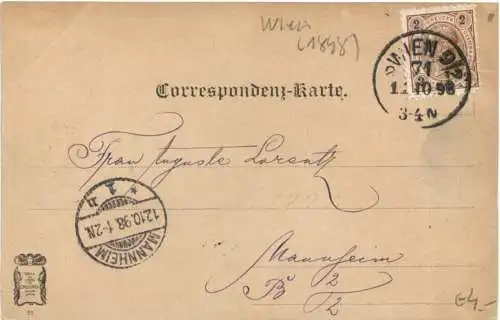 Wien
(1898)
2 2
WIEN 9/2
71
10 98
3-4N
Correspondenz-Karte.
Frau Auguste Lorenth
MANNHEIM
12.10.98.1-2N.
* 1 n
Mannheim
B 2/2
G4,-